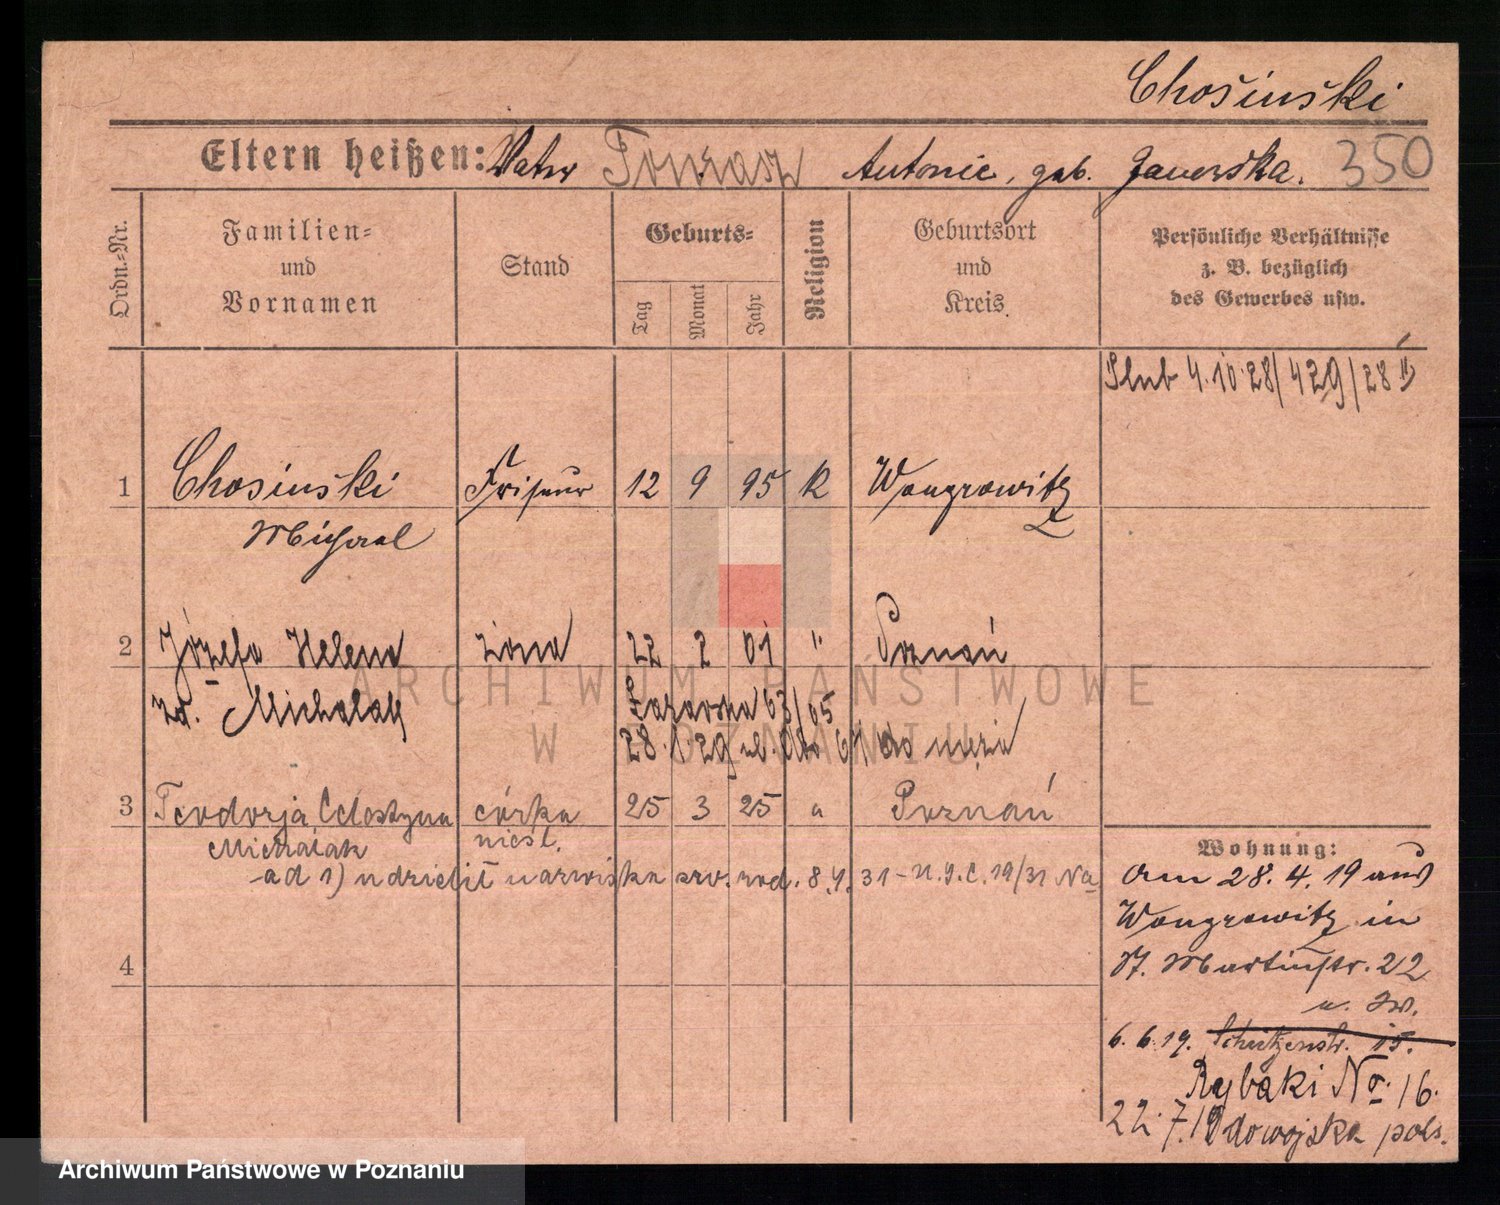 Chosiński
Eltern heißen: Vater Tomasz Antonie, geb. Jaworska. 350
Ordn.-Nr.
Familien-
und
Vornamen
Stand
Geburts-
Tag
Monat
Jahr
Religion
Geburtsort
und
Kreis.
Persönliche Verhältnisse
z. B. bezüglich
des Gewerbes usw.
Ślub 4.10.28/429/28
1 Chosinski Friseur 12 9 95 K Wongrowitz
Michael
2 Józefa Helena żona 22 2 01 " Poznań
Michalak
28.1.29 do męża
3 Teodozja Celestyna córka 25 3 25 " Poznań
Michalak nieśl.
ad 1) udzielił nazwiska 8.4.31
4
Wohnung:
Am 28.4.19 aus
Wongrowitz in
St. Martinstr. 22
6.6.19. Schützenstr. 15.
Rybaki No. 16.
22.7.19
ARCHIWUM PAŃSTWOWE
W POZNANIU
Archiwum Państwowe w Poznaniu